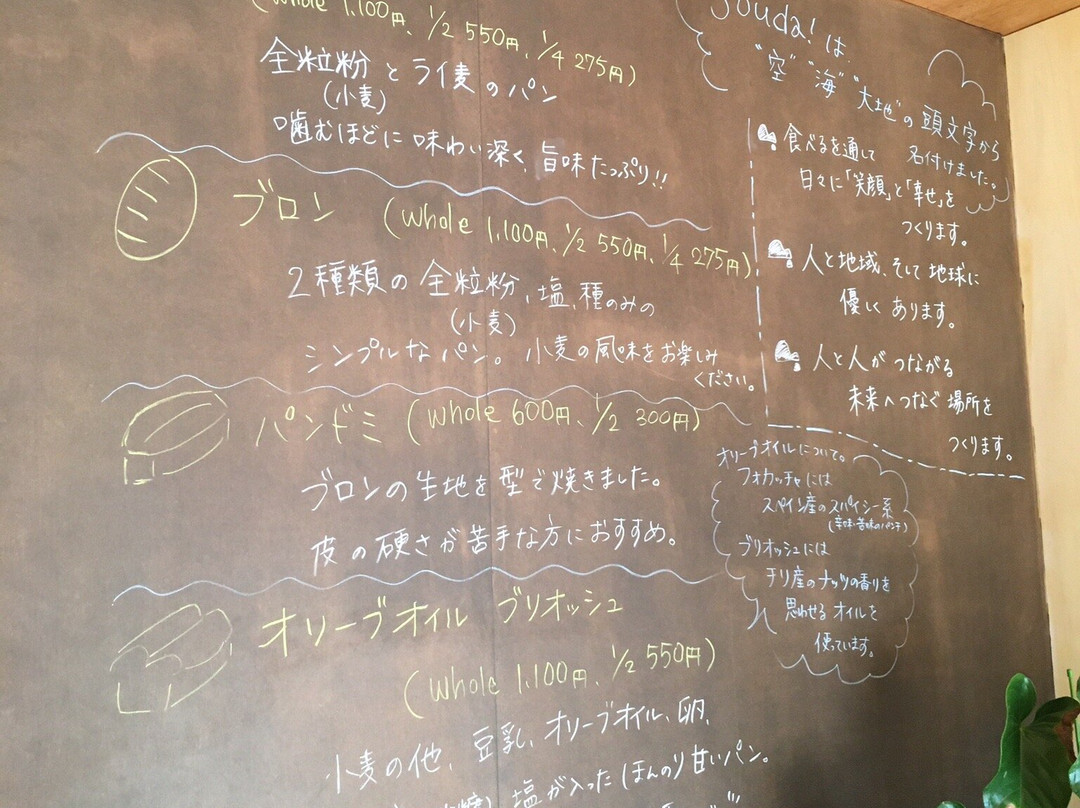 (whole 1,100円、1/2 550円、1/4 275円)
全粒粉とライ麦のパン
(小麦)
噛むほどに味わい深く、旨味たっぷり!!
ブロン (whole 1,100円、1/2 550円、1/4 275円)
2種類の全粒粉、塩、種のみの
(小麦)
シンプルなパン。小麦の風味をお楽しみ
ください。
パンドミ (whole 600円、1/2 300円)
ブロンの生地を型で焼きました。
皮の硬さが苦手な方におすすめ。
オリーブオイル ブリオッシュ
(whole 1,100円、1/2 550円)
小麦の他、豆乳、オリーブオイル、卵、
塩が入ったほんのり甘いパン。
Souda! は、
"空" "海" "大地"の頭文字から
名付けました。
食べるを通して
日々に「笑顔」と「幸せ」を
つくります。
人と地域、そして地球に
優しくあります。
人と人がつながる
未来へつなぐ場所を
つくります。
オリーブオイルについて。
フォカッチャには
スペイン産のスパイシー系
(辛味・苦味のパンチ)
ブリオッシュには
チリ産のナッツの香りを
思わせるオイルを
使っています。